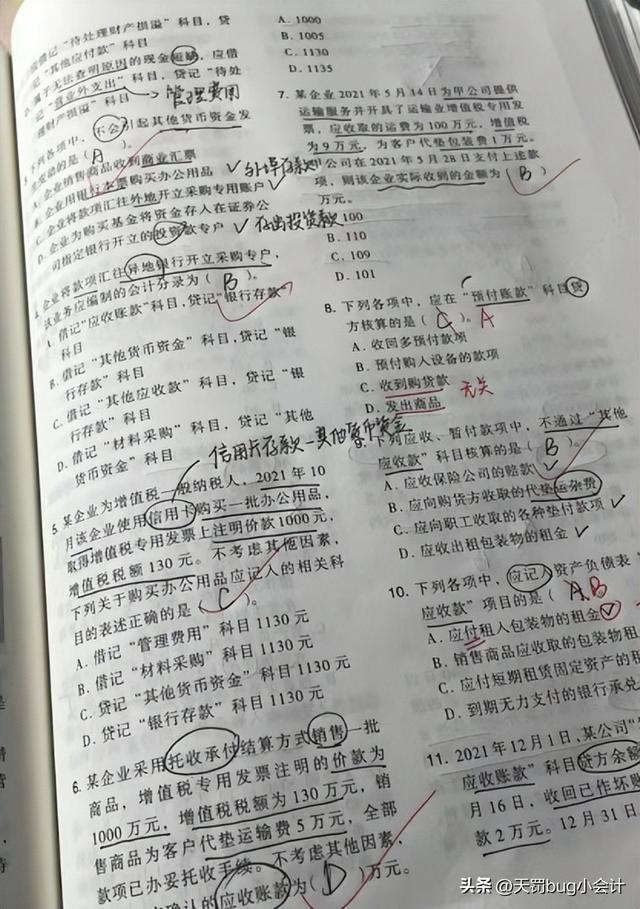 应借记“待处理财产损溢”科目，贷
记“其他应付款”科目
D. 属于无法查明原因的现金短缺，应借
记“营业外支出”科目，贷记“待处
理财产损溢”科目
管理费用
下列各项中，不会引起其他货币资金发
生变动的是（A）。
A. 企业销售商品收到商业汇票
B. 企业用银行本票购买办公用品
C. 企业将款项汇往外地开立采购专用账户
外埠存款
D. 企业为购买基金将资金存入在证券公
司指定银行开立的投资款专户
存出投资款
企业将款项汇往异地银行开立采购专户，
该业务应编制的会计分录为（B）。
A. 借记“应收账款”科目，贷记“银行存款”
科目
B. 借记“其他货币资金”科目，贷记“银
行存款”科目
C. 借记“其他应收款”科目，贷记“银
行存款”科目
D. 借记“材料采购”科目，贷记“其他
货币资金”科目
信用卡存款—其他货币资金
5. 某企业为增值税一般纳税人，2021年10
月该企业使用信用卡购买一批办公用品，
取得增值税专用发票上注明价款1000元，
增值税税额130元。不考虑其他因素，
下列关于购买办公用品应记入的相关科
目的表述正确的是（C）。
A. 借记“管理费用”科目1130元
B. 借记“材料采购”科目1130元
C. 贷记“其他货币资金”科目1130元
D. 贷记“银行存款”科目1130元
6. 某企业采用托收承付结算方式销售一批
商品，增值税专用发票注明的价款为
1000万元，增值税税额为130万元，销
售商品为客户代垫运输费5万元，全部
款项已办妥托收手续。不考虑其他因素，
确认的应收账款为（D）万元。
A. 1000
B. 1005
C. 1130
D. 1135
7. 某企业2021年5月14日为甲公司提供
运输服务并开具了运输业增值税专用发
票，应收取的运费为100万元，增值税
为9万元，为客户代垫包装费1万元。
甲公司在2021年5月28日支付上述款
项，则该企业实际收到的金额为（B）
万元。
A. 100
B. 110
C. 109
D. 101
8. 下列各项中，应在“预付账款”科目贷
方核算的是（C）。A
A. 收回多预付款项
B. 预付购入设备的款项
C. 收到购货款
D. 发出商品
无关
下列应收、暂付款项中，不通过“其他
应收款”科目核算的是（B）。
A. 应收保险公司的赔款
B. 应向购货方收取的代垫运杂费
C. 应向职工收取的各种垫付款项
D. 应收出租包装物的租金
10. 下列各项中，应记入资产负债表“
应收款”项目的是（AB
A. 应付租入包装物的租金
B. 销售商品应收取的包装物租
C. 应付短期租赁固定资产的租
D. 到期无力支付的银行承兑
11. 2021年12月1日，某公司“
应收账款”科目贷方余额
月16日，收回已作坏账
款2万元。12月31日
头条 @天罚bug小会计